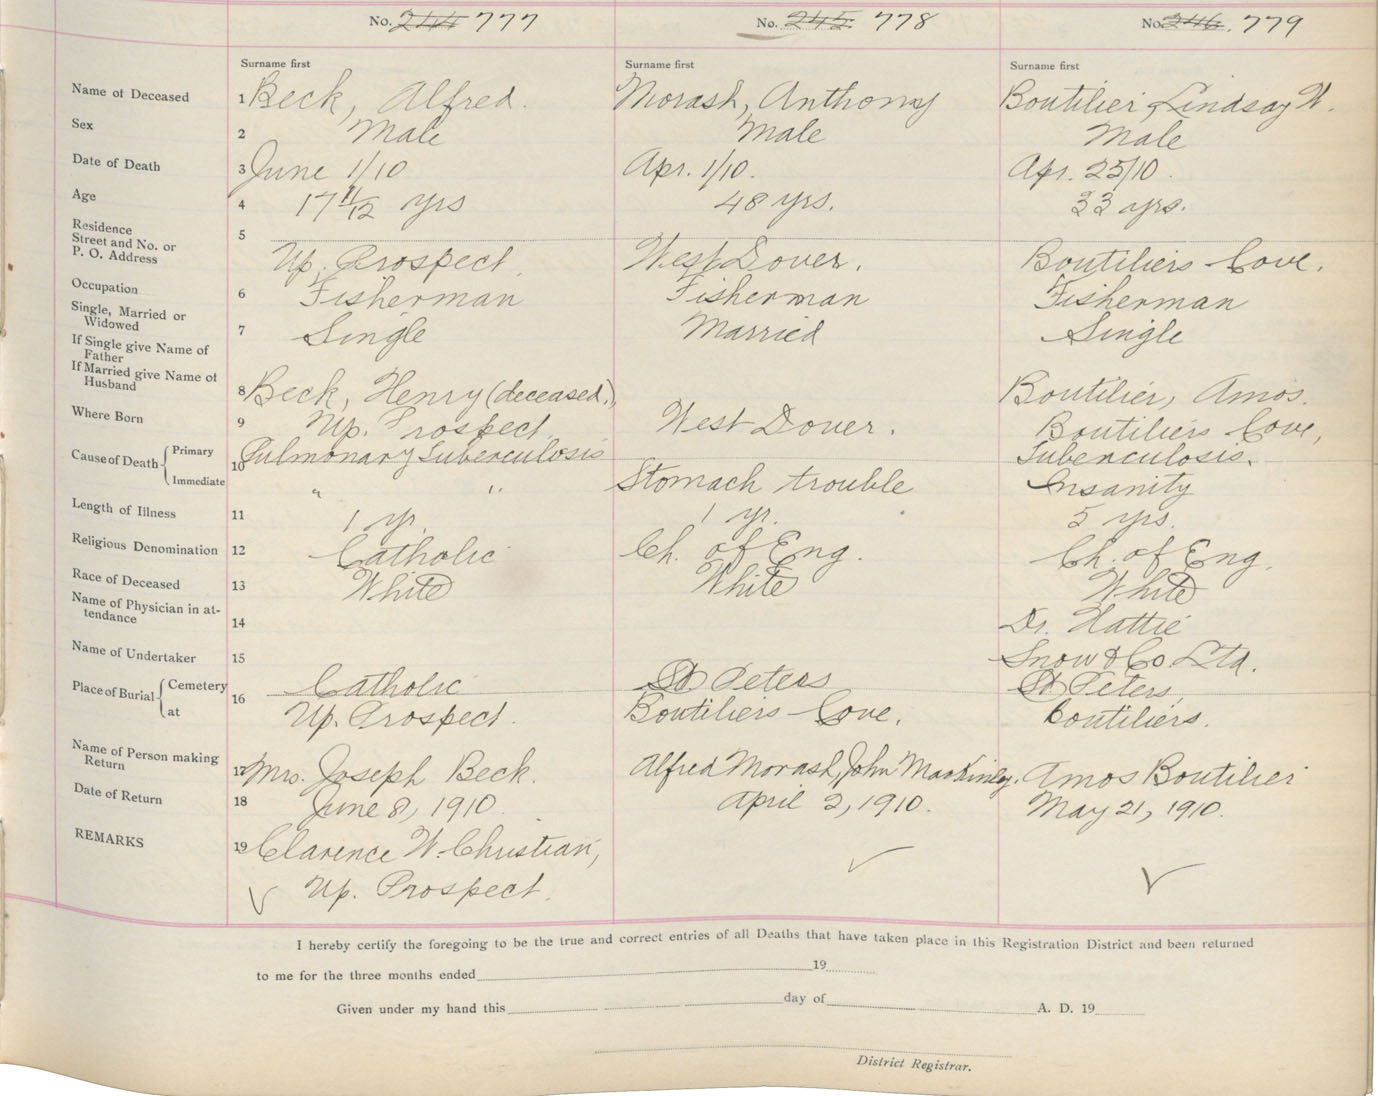 No. 244 777 No. 245 778 No. 246. 779
Surname first Surname first Surname first
Name of Deceased 1 Beck, Alfred. Morash, Anthony Boutilier, Lindsay W.
Sex 2 Male Male Male
Date of Death 3 June 1/10 Apr. 1/10. Apr. 25/10.
Age 4 17 11/12 yrs 48 yrs. 33 yrs.
Residence
Street and No. or
P. O. Address 5 Up. Prospect. West Dover. Boutiliers Cove.
Occupation 6 Fisherman Fisherman Fisherman
Single, Married or
Widowed 7 Single Married Single
If Single give Name of
Father
If Married give Name of
Husband 8 Beck, Henry (deceased.), Boutilier, Amos.
Where Born 9 Up. Prospect. West Dover. Boutiliers Cove,
Cause of Death { Primary 10 Pulmonary Tuberculosis Tuberculosis.
Immediate " " Stomach trouble Insanity
Length of Illness 11 1 yr. 1 yr. 5 yrs.
Religious Denomination 12 Catholic Ch. of Eng. Ch. of Eng.
Race of Deceased 13 White White White
Name of Physician in at-
tendance 14 Dr. Hattie
Name of Undertaker 15 Snow & Co Ltd.
Place of Burial { Cemetery 16 Catholic St Peters St Peters,
at Up. Prospect. Boutiliers Cove. Boutiliers.
Name of Person making
Return 17 Mrs. Joseph Beck. Alfred Morash, John MacKinley. Amos Boutilier
Date of Return 18 June 8, 1910. April 2, 1910. May 21, 1910.
REMARKS 19 Clarence W. Christian,
✓ Up. Prospect. ✓ ✓
I hereby certify the foregoing to be the true and correct entries of all Deaths that have taken place in this Registration District and been returned
to me for the three months ended 19
Given under my hand this day of A. D. 19
District Registrar.